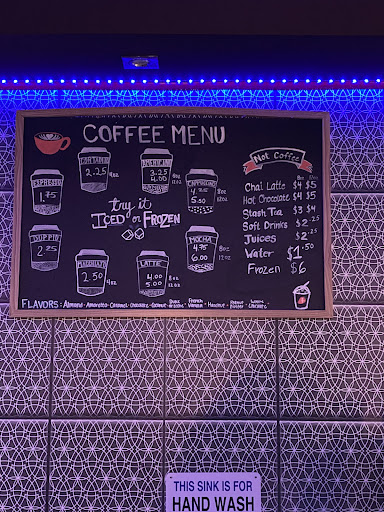 COFFEE MENU
CORTADO
2.25 4oz
AMERICANO
3.25
4.00
8oz
12oz
ESPRESSO
1.75
CAPPUCCINO
5.00
8oz
12oz
try it
ICED or FROZEN
DOPPIO
2.25
MACCHIATO
2.50 4oz
LATTE
4.00
5.00
8oz
12oz
MOCHA
4.75
6.00
8oz
12oz
Not Coffee
8oz 12oz
Chai Latte $4 $5
Hot Chocolate $4 $5
Stash Tea $3 $4
Soft Drinks $2.25
Juices $2.25
Water $1.50
Frozen $6
FLAVORS: Almond - Amaretto - Caramel - Chocolate - Coconut - French Vanilla - Hazelnut -
THIS SINK IS FOR
HAND WASH